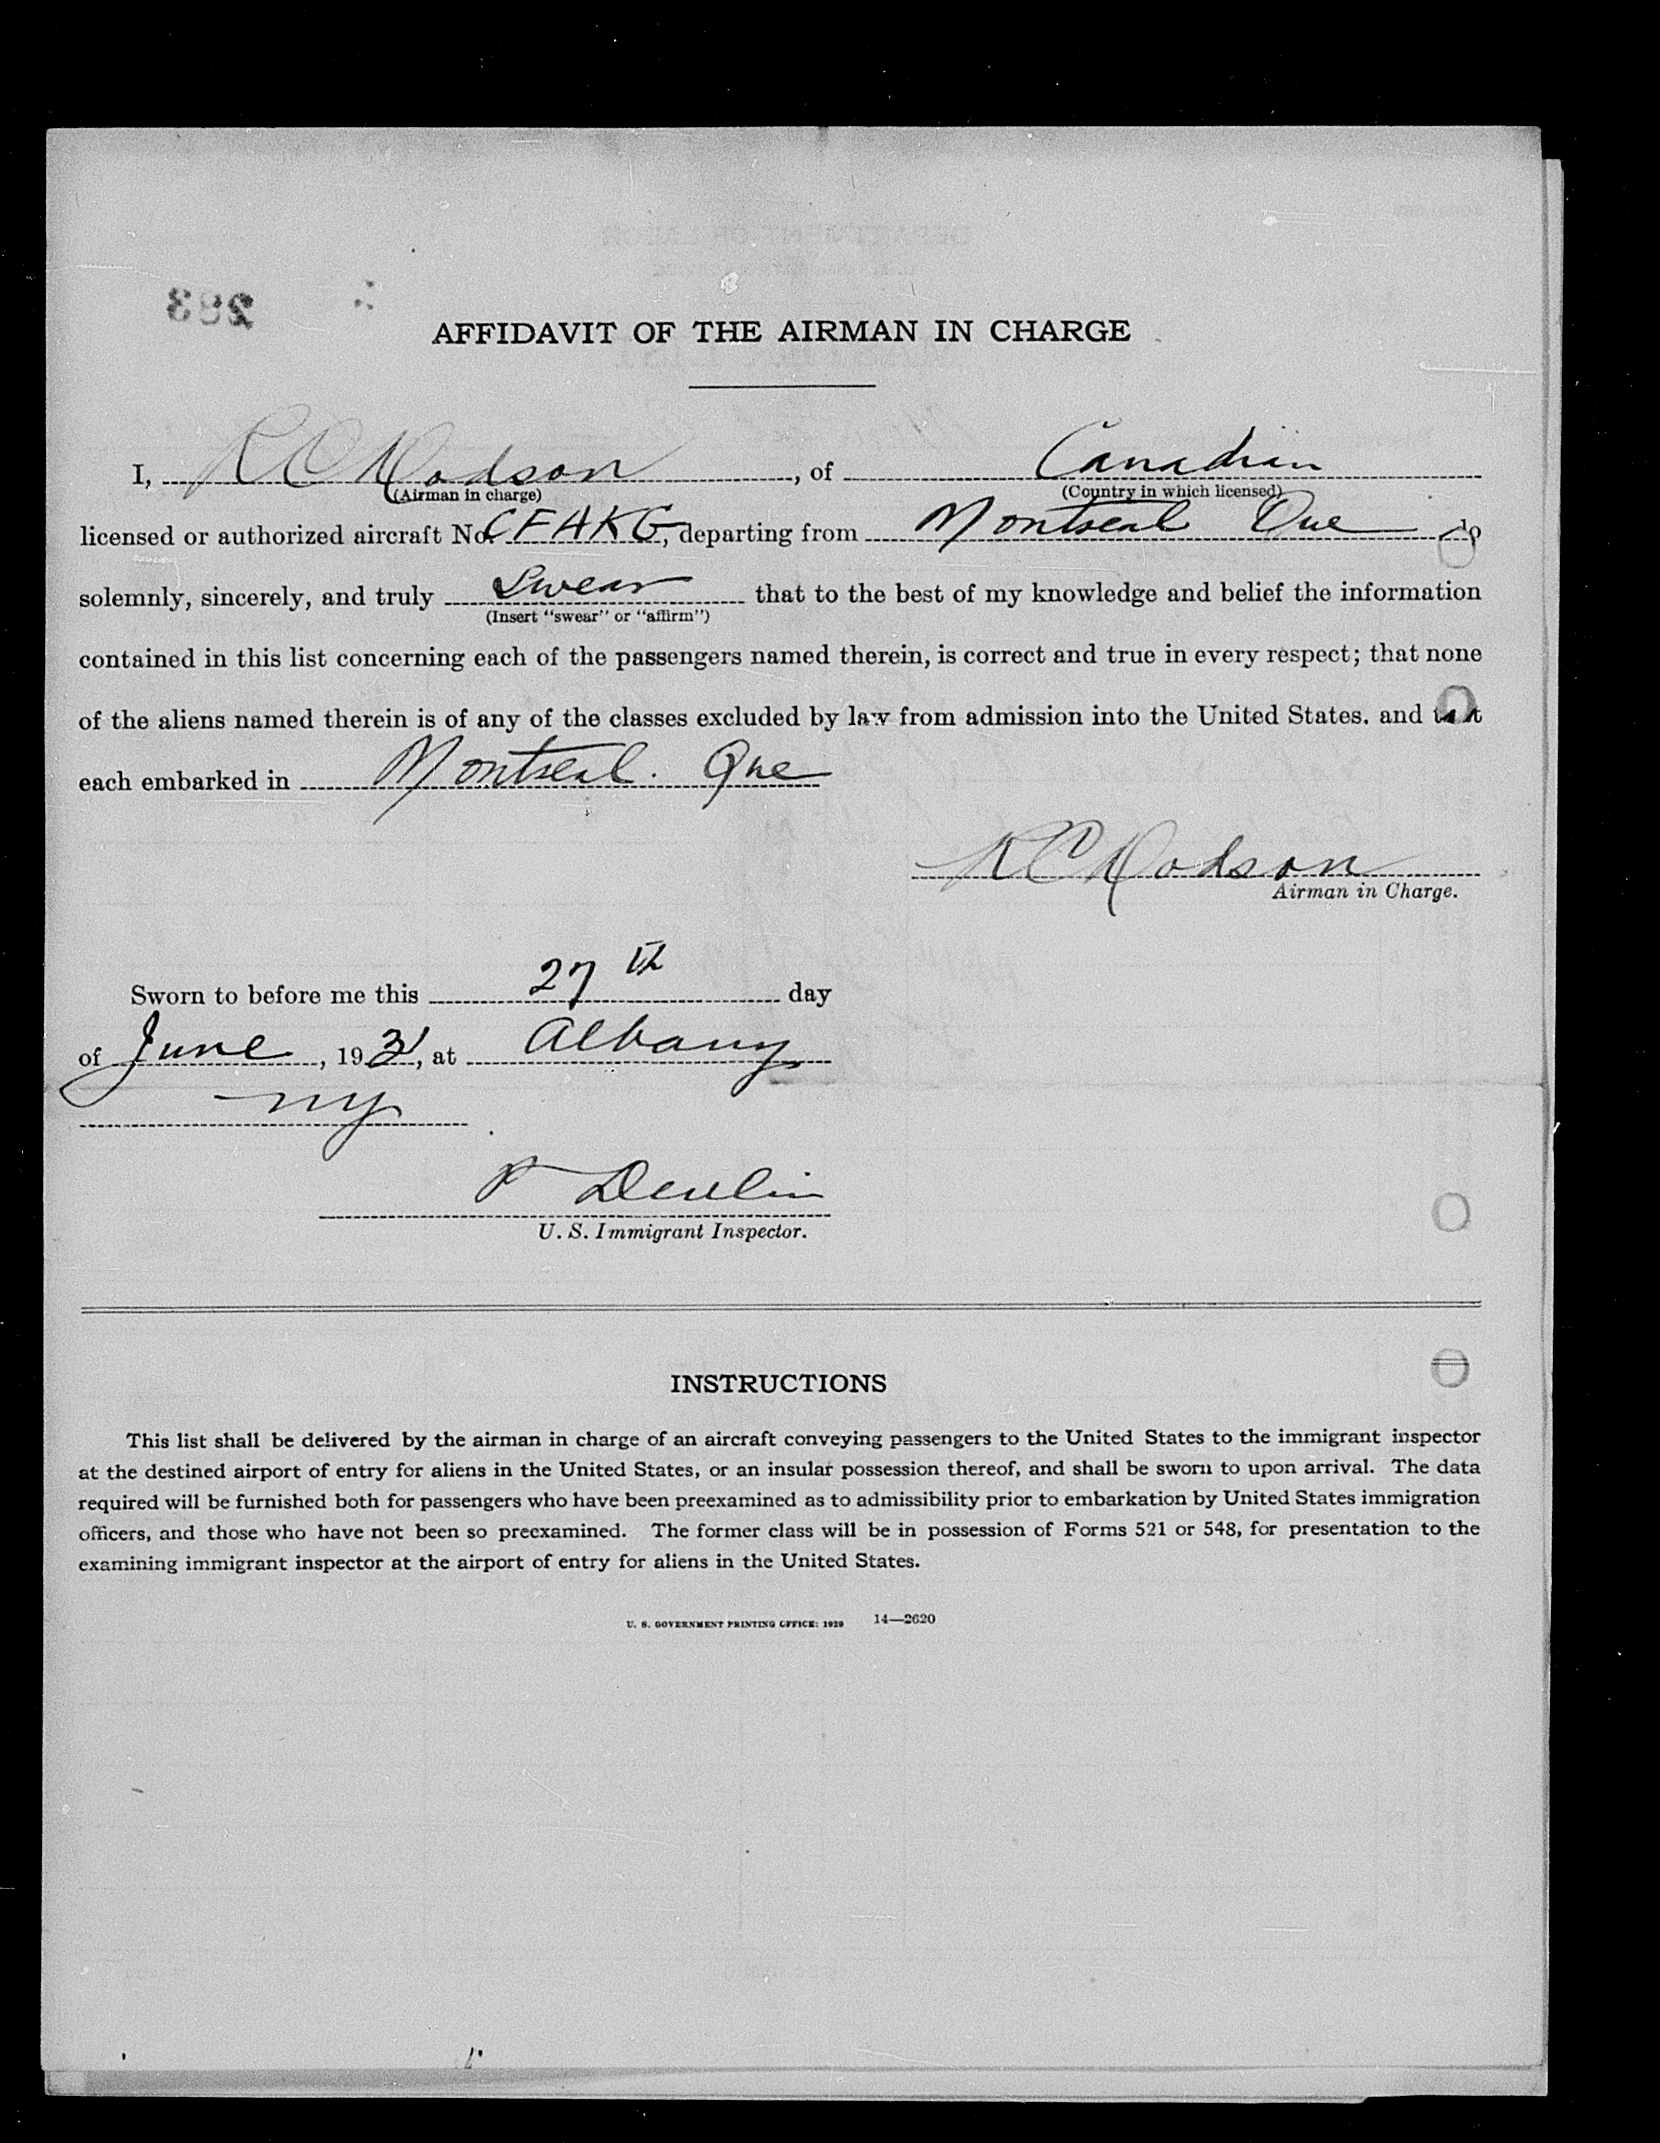 283
AFFIDAVIT OF THE AIRMAN IN CHARGE
I, R C Dodson, of Canadian
(Airman in charge) (Country in which licensed)
licensed or authorized aircraft No. CFAKG, departing from Montreal Que do
solemnly, sincerely, and truly Swear that to the best of my knowledge and belief the information
(Insert "swear" or "affirm")
contained in this list concerning each of the passengers named therein, is correct and true in every respect; that none
of the aliens named therein is of any of the classes excluded by law from admission into the United States, and that
each embarked in Montreal. Que
R C Dodson
Airman in Charge.
Sworn to before me this 27th day
of June, 1931, at Albany
NY
P Devlin
U. S. Immigrant Inspector.
INSTRUCTIONS
This list shall be delivered by the airman in charge of an aircraft conveying passengers to the United States to the immigrant inspector
at the destined airport of entry for aliens in the United States, or an insular possession thereof, and shall be sworn to upon arrival. The data
required will be furnished both for passengers who have been preexamined as to admissibility prior to embarkation by United States immigration
officers, and those who have not been so preexamined. The former class will be in possession of Forms 521 or 548, for presentation to the
examining immigrant inspector at the airport of entry for aliens in the United States.
U. S. GOVERNMENT PRINTING OFFICE: 1929 14—2620